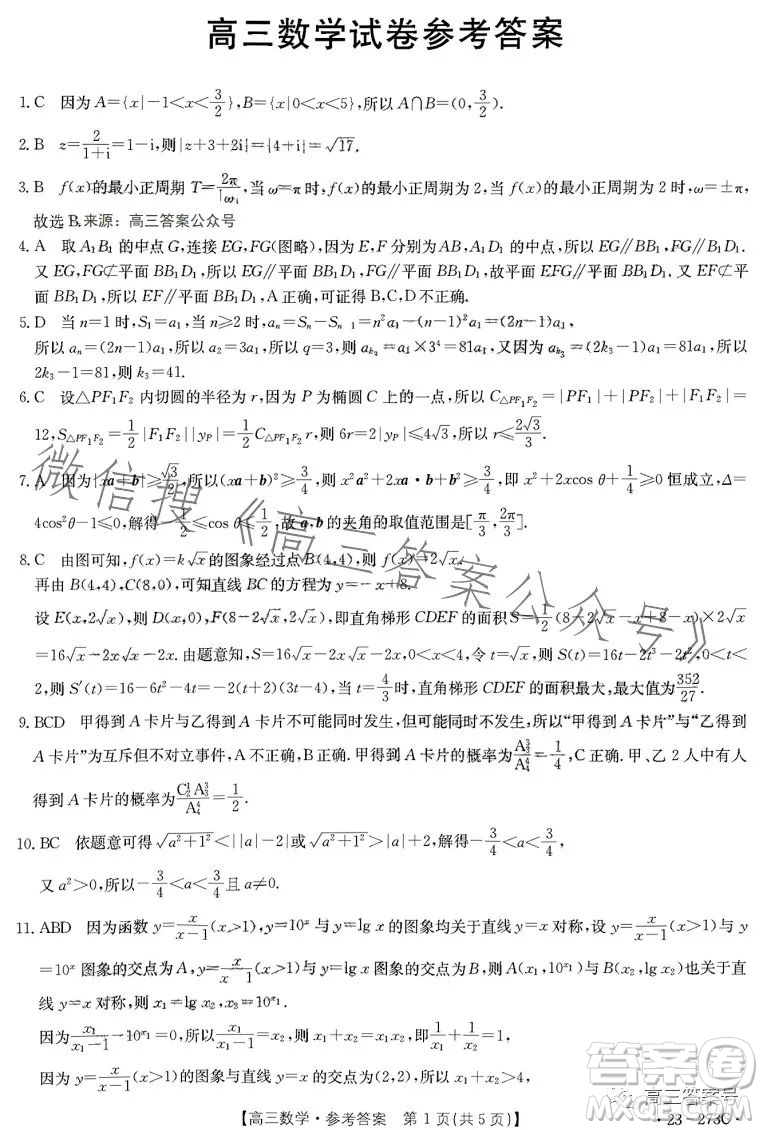 高三数学试卷参考答案
1. C 因为A={x|-1<x<3/2},B={x|0<x<5},所以A∩B=(0,3/2).
2. B z=2/(1+i)=1-i,则|z+3+2i|=|4+i|=√17.
3. B f(x)的最小正周期 T=2π/|ω|,当ω=π时,f(x)的最小正周期为2,当f(x)的最小正周期为2时,ω=±π,
故选B.来源：高三答案公众号
4. A 取A₁B₁的中点G,连接EG,FG(图略),因为E,F分别为AB,A₁D₁的中点,所以EG∥BB₁,FG∥B₁D₁.
又EG,FG⊄平面BB₁D₁,所以EG∥平面BB₁D₁,FG∥平面BB₁D₁,故平面EFG∥平面BB₁D₁.又EF⊄平
面BB₁D₁,所以EF∥平面BB₁D₁,A正确,可证得B,C,D不正确.
5. D 当n=1时,S₁=a₁,当n≥2时,aₙ=Sₙ-Sₙ₋₁=n²a₁-(n-1)²a₁=(2n-1)a₁,
所以aₙ=(2n-1)a₁,所以a₂=3a₁,所以q=3,所以a_{k₃}=a₁×3⁴=81a₁.又因为a_{k₃}=(2k₃-1)a₁=81a₁,所以
2k₃-1=81,所以k₃=41.
6. C 设△PF₁F₂内切圆的半径为r,因为P为椭圆C上的一点,所以C_{△PF₁F₂}=|PF₁|+|PF₂|+|F₁F₂|=
12,S_{△PF₁F₂}=1/2|F₁F₂||y_P|=1/2C_{△PF₁F₂}r,则6r=2|y_P|≤4√3,所以r≤2√3/3.
7. A 因为|xa+b|≥√3/2,所以(xa+b)²≥3/4,则x²a²+2xa·b+b²≥3/4,即x²+2xcosθ+1/4≥0恒成立,Δ=
4cos²θ-1≤0,解得-1/2≤cosθ≤1/2,故a,b的夹角的取值范围是[π/3,2π/3].
8. C 由图可知,f(x)=k√x的图象经过点B(4,4),则f(x)=2√x.
再由B(4,4),C(8,0),可知直线BC的方程为y=-x+8.
设E(x,2√x),则D(x,0),F(8-2√x,2√x),即直角梯形CDEF的面积S=1/2(8-2√x-x+8-x)×2√x
=16√x-2x-2x√x.由题意知,S=16√x-2x-2x√x,0<x<4,令t=√x,则S(t)=16t-2t³-2t²,0<t<
2,所以S′(t)=16-6t²-4t=2(t+2)(4-3t),当t=4/3时,直角梯形CDEF的面积最大,最大值为352/27.
9. BCD 甲得到A卡片与乙得到A卡片不可能同时发生,但可能同时不发生,所以“甲得到A卡片”与“乙得到
A卡片”为互斥但不对立事件,A不正确,B正确.甲得到A卡片的概率为A₃³/A₄⁴=1/4,C正确.甲、乙2人中有人
得到A卡片的概率为C₂¹A₃³/A₄⁴=1/2.
10. BC 依题意可得√(a²+1²)<||a|-2|或√(a²+1²)>|a|+2,解得-3/4<a<3/4,
又a²>0,所以-3/4<a<3/4且a≠0.
11. ABD 因为函数y=x/(x-1)(x>1),y=10ˣ与y=lg x的图象均关于直线y=x对称,设y=x/(x-1)(x>1)与y
=10ˣ图象的交点为A,y=x/(x-1)(x>1)与y=lg x图象的交点为B,则A(x₁,10^{x₁})与B(x₂,lg x₂)也关于直
线y=x对称,则x₁=lg x₂,x₂=10^{x₁}.
因为x₁/(x₁-1)-10^{x₁}=0,所以x₁/(x₁-1)=x₂,则x₁+x₂=x₁x₂,即1/x₁+1/x₂=1,
因为y=x/(x-1)(x>1)的图象与直线y=x的交点为(2,2),所以x₁+x₂>4,
【高三数学·参考答案 第1页(共5页)】
·23-273C·
微信搜《高三答案公众号》
高三答案号
答案卷